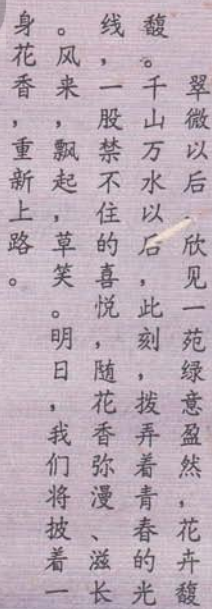 翠微以后、欣见一苑绿意盈然,花卉馥
馥。千山万水以后,此刻,拨弄着青春的光
线,一股禁不住的喜悦,随花香弥漫、滋长
。风来,飘起,草笑。明日,我们将披着一
身花香,重新上路。